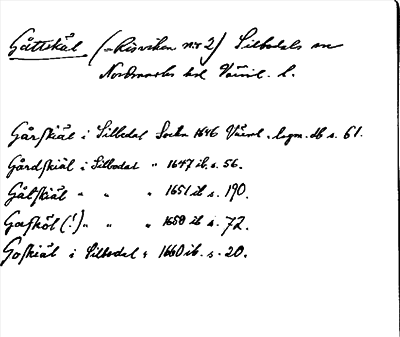 Gåttskäl (= Risviken nr 2) Silbodals sn
Nordmarks hd Värml. l.
Gårskiäl i Silbodal Sockn 1646 Värml. legm. db s. 61.
Gårdskiäl i Silbodal " 1647 ib. s. 56.
Gålskiäl " " " 1651 ib s. 190.
Goeskól (!) " " " 1658 ib s. 72.
Goskiäl i Silbodal " 1660 ib. s. 20.